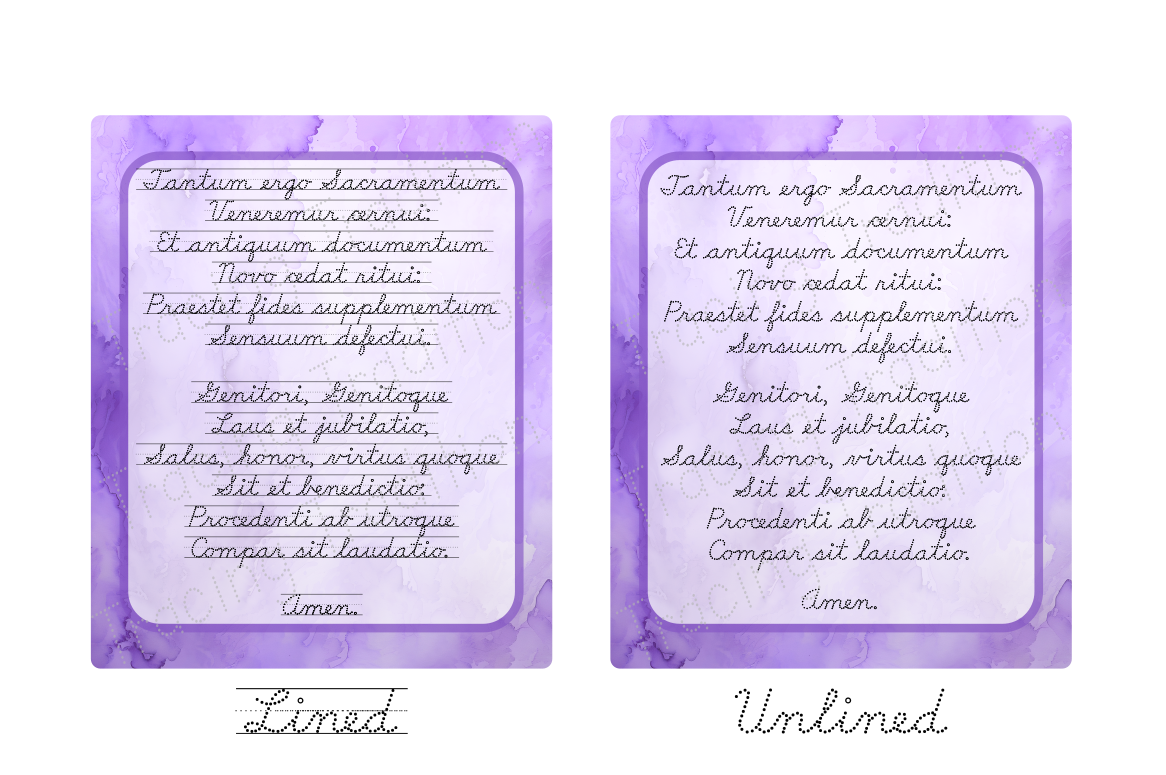 Tantum ergo Sacramentum
Veneremur cernui:
Et antiquum documentum
Novo cedat ritui:
Praestet fides supplementum
Sensuum defectui.
Genitori, Genitoque
Laus et jubilatio,
Salus, honor, virtus quoque
Sit et benedictio:
Procedenti ab utroque
Compar sit laudatio.
Amen.
Lined
Tantum ergo Sacramentum
Veneremur cernui:
Et antiquum documentum
Novo cedat ritui:
Praestet fides supplementum
Sensuum defectui.
Genitori, Genitoque
Laus et jubilatio,
Salus, honor, virtus quoque
Sit et benedictio:
Procedenti ab utroque
Compar sit laudatio.
Amen.
Unlined